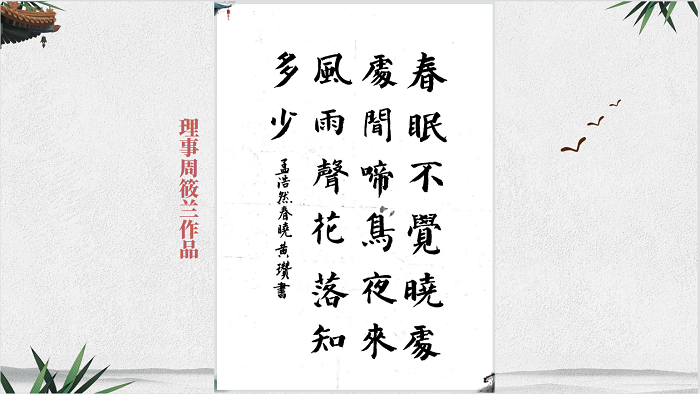 春眠不覺曉處
處聞啼鳥夜來
風雨聲花落知
多少
孟浩然春曉黄瓚書
理事周筱兰作品